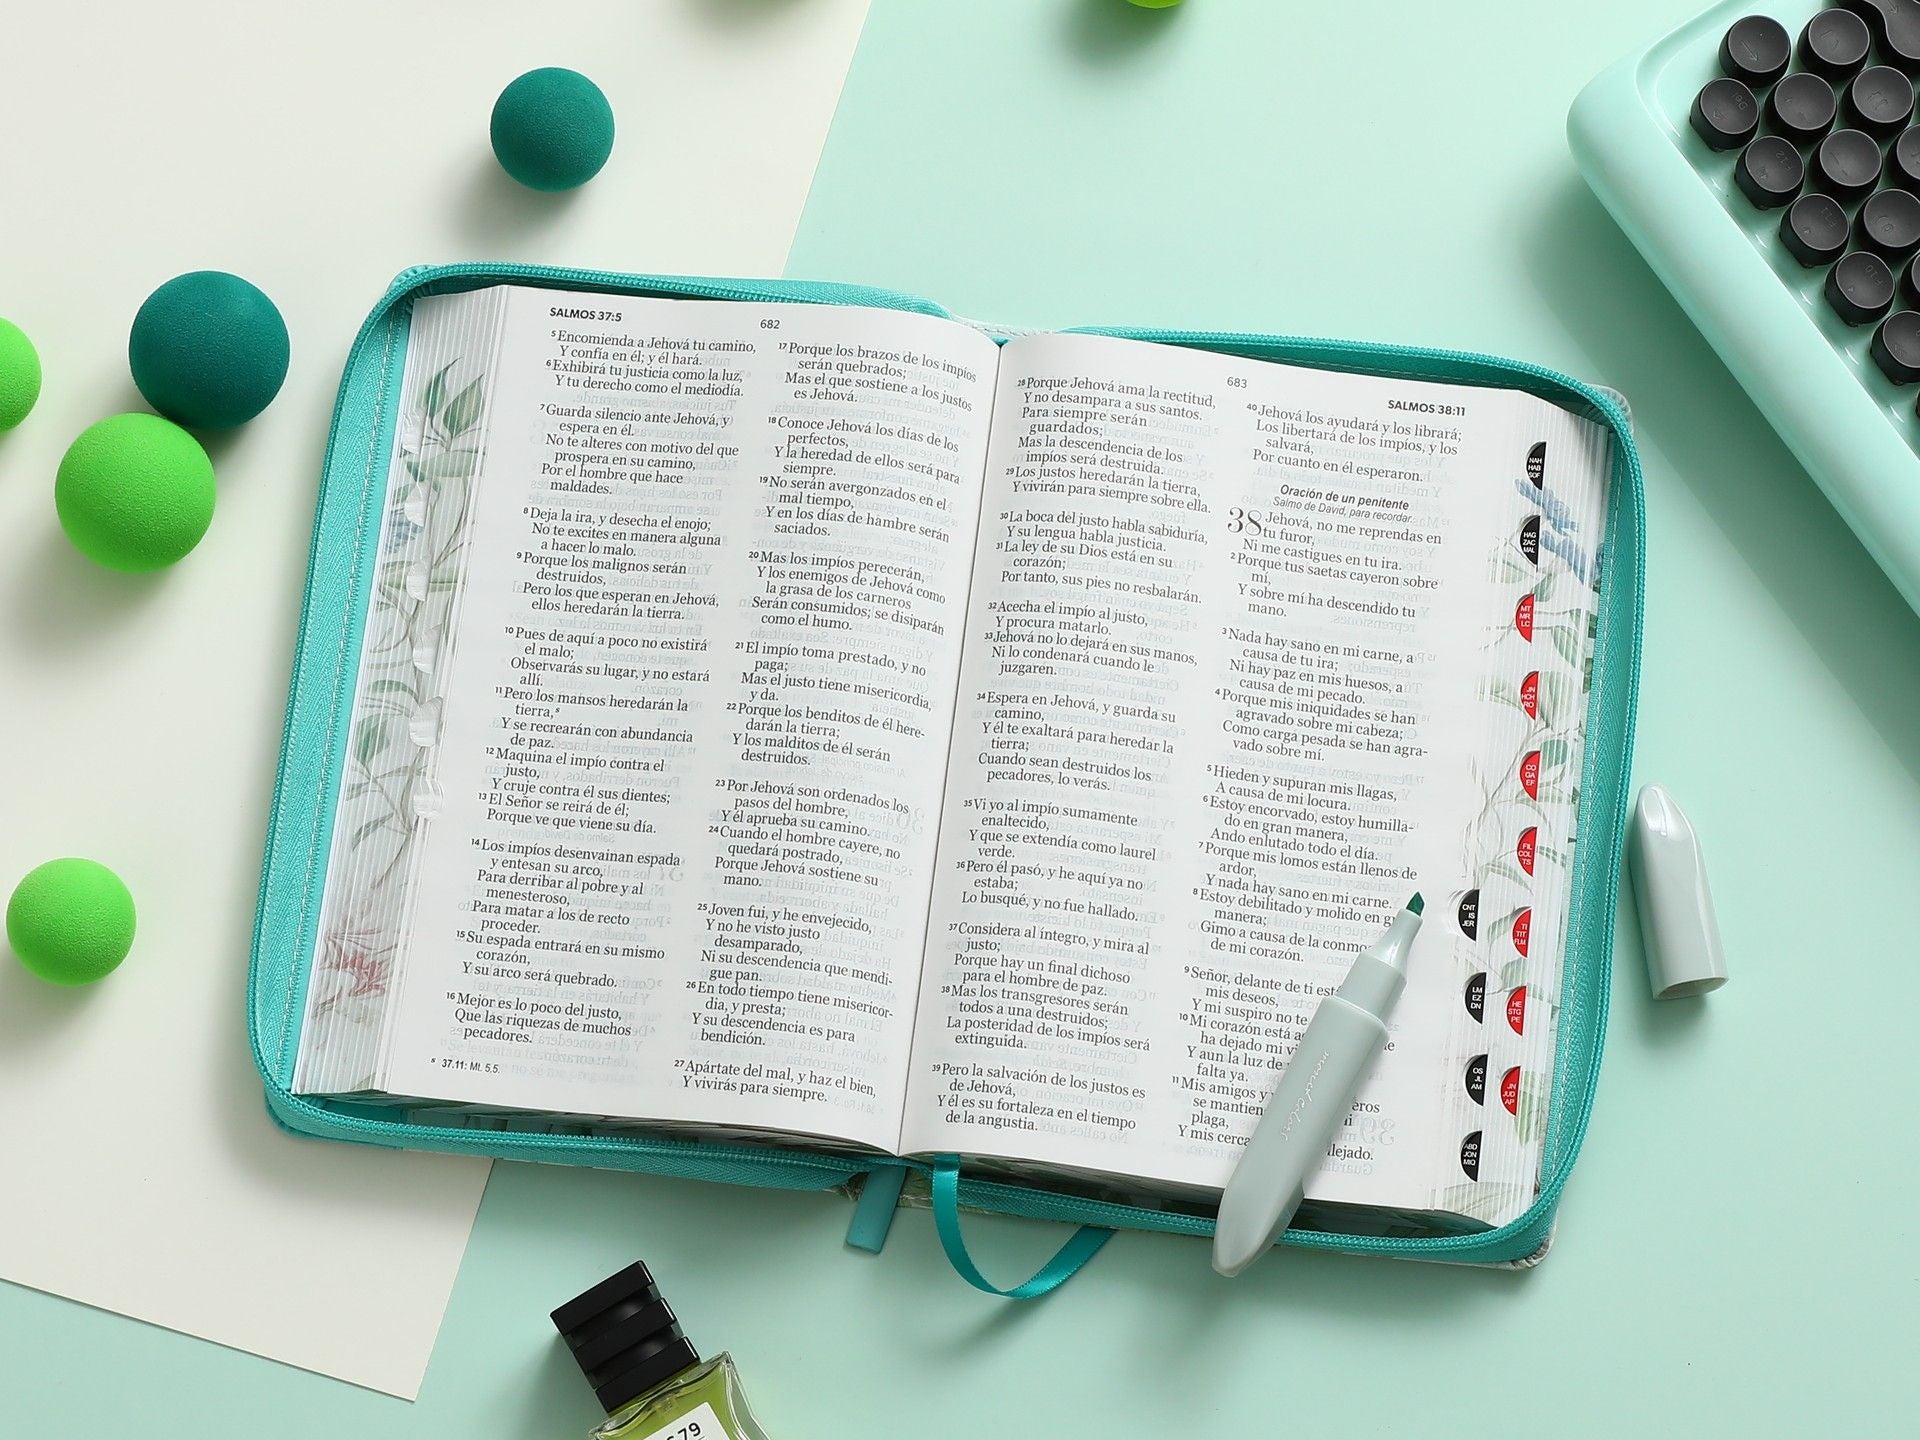 SALMOS 37:5
682
5 Encomienda a Jehová tu camino,
Y confía en él; y él hará.
6 Exhibirá tu justicia como la luz,
Y tu derecho como el mediodía.
7 Guarda silencio ante Jehová, y
espera en él.
No te alteres con motivo del que
prospera en su camino,
Por el hombre que hace
maldades.
8 Deja la ira, y desecha el enojo;
No te excites en manera alguna
a hacer lo malo.
9 Porque los malignos serán
destruidos,
Pero los que esperan en Jehová,
ellos heredarán la tierra.
10 Pues de aquí a poco no existirá
el malo;
Observarás su lugar, y no estará
allí.
11 Pero los mansos heredarán la
tierra,s
Y se recrearán con abundancia
de paz.
12 Maquina el impío contra el
justo,
Y cruje contra él sus dientes;
13 El Señor se reirá de él;
Porque ve que viene su día.
14 Los impíos desenvainan espada
y entesan su arco,
Para derribar al pobre y al
menesteroso,
Para matar a los de recto
proceder.
15 Su espada entrará en su mismo
corazón,
Y su arco será quebrado.
16 Mejor es lo poco del justo,
Que las riquezas de muchos
pecadores.
s 37.11: Mt. 5.5.
17 Porque los brazos de los impíos
serán quebrados;
Mas el que sostiene a los justos
es Jehová.
18 Conoce Jehová los días de los
perfectos,
Y la heredad de ellos será para
siempre.
19 No serán avergonzados en el
mal tiempo,
Y en los días de hambre serán
saciados.
20 Mas los impíos perecerán,
Y los enemigos de Jehová como
la grasa de los carneros
Serán consumidos; se disiparán
como el humo.
21 El impío toma prestado, y no
paga;
Mas el justo tiene misericordia,
y da.
22 Porque los benditos de él here-
darán la tierra;
Y los malditos de él serán
destruidos.
23 Por Jehová son ordenados los
pasos del hombre,
Y él aprueba su camino.
24 Cuando el hombre cayere, no
quedará postrado,
Porque Jehová sostiene su
mano.
25 Joven fui, y he envejecido,
Y no he visto justo
desamparado,
Ni su descendencia que mendi-
gue pan.
26 En todo tiempo tiene misericor-
dia, y presta;
Y su descendencia es para
bendición.
27 Apártate del mal, y haz el bien,
Y vivirás para siempre.
683
SALMOS 38:11
28 Porque Jehová ama la rectitud,
Y no desampara a sus santos.
Para siempre serán
guardados;
Mas la descendencia de los
impíos será destruida.
29 Los justos heredarán la tierra,
Y vivirán para siempre sobre ella.
30 La boca del justo habla sabiduría,
Y su lengua habla justicia.
31 La ley de su Dios está en su
corazón;
Por tanto, sus pies no resbalarán.
32 Acecha el impío al justo,
Y procura matarlo.
33 Jehová no lo dejará en sus manos,
Ni lo condenará cuando le
juzgaren.
34 Espera en Jehová, y guarda su
camino,
Y él te exaltará para heredar la
tierra;
Cuando sean destruidos los
pecadores, lo verás.
35 Vi yo al impío sumamente
enaltecido,
Y que se extendía como laurel
verde.
36 Pero él pasó, y he aquí ya no
estaba;
Lo busqué, y no fue hallado.
37 Considera al íntegro, y mira al
justo;
Porque hay un final dichoso
para el hombre de paz.
38 Mas los transgresores serán
todos a una destruidos;
La posteridad de los impíos será
extinguida.
39 Pero la salvación de los justos es
de Jehová,
Y él es su fortaleza en el tiempo
de la angustia.
40 Jehová los ayudará y los librará;
Los libertará de los impíos, y los
salvará,
Por cuanto en él esperaron.
Oración de un penitente
Salmo de David, para recordar.
38 Jehová, no me reprendas en
tu furor,
Ni me castigues en tu ira.
2 Porque tus saetas cayeron sobre
mí,
Y sobre mí ha descendido tu
mano.
3 Nada hay sano en mi carne, a
causa de tu ira;
Ni hay paz en mis huesos, a
causa de mi pecado.
4 Porque mis iniquidades se han
agravado sobre mi cabeza;
Como carga pesada se han agra-
vado sobre mí.
5 Hieden y supuran mis llagas,
A causa de mi locura.
6 Estoy encorvado, estoy humilla-
do en gran manera,
Ando enlutado todo el día.
7 Porque mis lomos están llenos de
ardor,
Y nada hay sano en mi carne.
8 Estoy debilitado y molido en gr
manera;
Gimo a causa de la conmo
de mi corazón.
9 Señor, delante de ti est
mis deseos,
Y mi suspiro no te
10 Mi corazón está a
ha dejado mi vi
Y aun la luz de
falta ya.
11 Mis amigos y
se mantien eros
plaga,
Y mis cerca lejado.
NAH
HAB
SOF
HAG
ZAC
MAL
MT
MR
LC
JN
HCH
RO
CO
GA
EF
FIL
COL
TS
CNT
IS
JER
TI
TIT
FLM
LM
EZ
DN
HE
STG
PE
OS
JL
AM
JN
JUD
AP
ABD
JON
MIQ
79